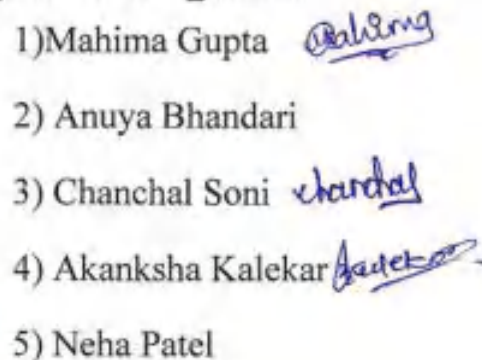 1)Mahima Gupta Mahima
2) Anuya Bhandari
3) Chanchal Soni chanchal
4) Akanksha Kalekar
5) Neha Patel